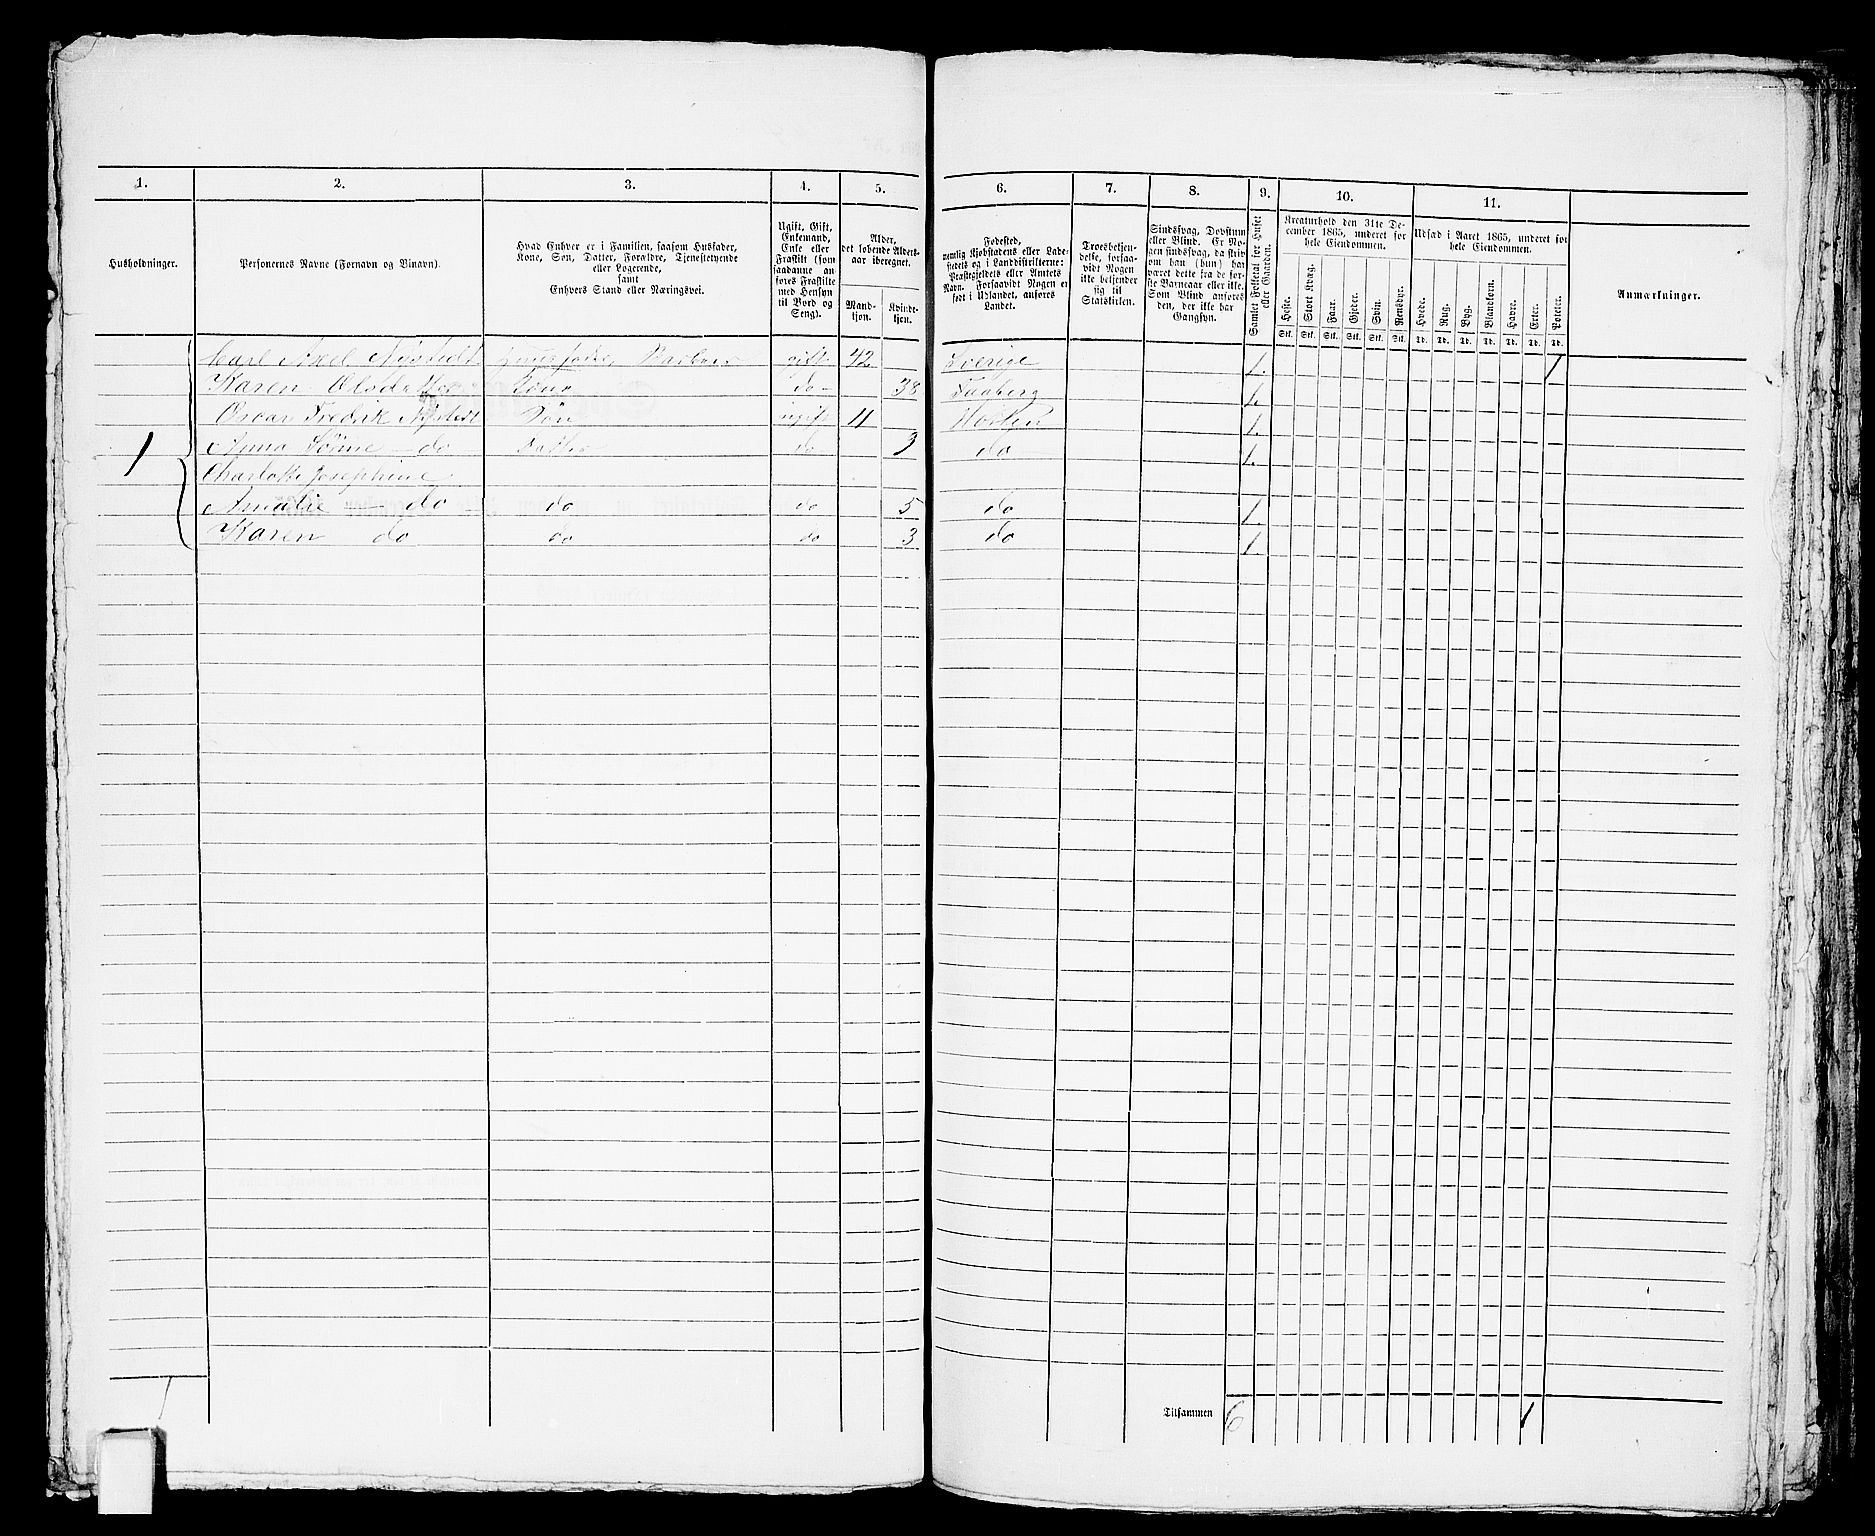 1. 2. 3. 4. 5. 6. 7. 8. 9. 10. 11.
Husholdninger.
Personernes Navne (Fornavn og Binavn).
Hvad Enhver er i Familien, saasom Husfader,
Kone, Søn, Datter, Forældre, Tjenestetyende
eller Logerende,
samt
Enhvers Stand eller Næringsvei.
Ugift, Gift,
Enkemand,
Enke eller
Fraskilt (som
saadanne an-
føres Fraskilte
med Hensyn
til Bord og
Seng).
Alder,
det løbende Alders-
aar iberegnet.
Mand-
kjøn.
Kvinde-
kjøn.
Fødested,
nemlig Kjøbstadens eller Lade-
stedets og i Landdistrikterne:
Præstegjeldets eller Amtets
Navn. Forsaavidt Nogen er
født i Udlandet, anføres
Landet.
Troesbekjen-
delse, forsaa-
vidt Nogen
ikke bekjender
sig til
Statskirken.
Sindssvag, Døvstum
eller Blind. Er No-
gen sindssvag, da skriv
om han (hun) har
været dette fra de før-
ste Barneaar eller ikke.
Som Blind anføres
den, der ikke har
Gangsyn.
Samlet Folketal for Huset
eller Gaarden.
Kreaturhold den 31te De-
cember 1865, anført for
hele Eiendommen.
Heste. Stort Kvæg. Faar. Gjeder. Svin. Rensdyr.
Stk. Stk. Stk. Stk. Stk. Stk.
Udsæd i Aaret 1865, anført for
hele Eiendommen.
Hvede. Rug. Byg. Blandkorn. Havre. Erter. Poteter.
Td. Td. Td. Td. Td. Td. Td.
Anmærkninger.
Carl Axel Nystedt gift 42 Sverige 1. 1
Karen Olsdatter Kone do 38 Faaberg 1.
Oscar Fredrik Nystedt Søn ugift 11 Horten 1.
1 Anna do Datter do do 1.
Charlotte Josephine
Amalie do do do 5 do 1.
Karen do do do 3 do 1.
Tilsammen 6 1